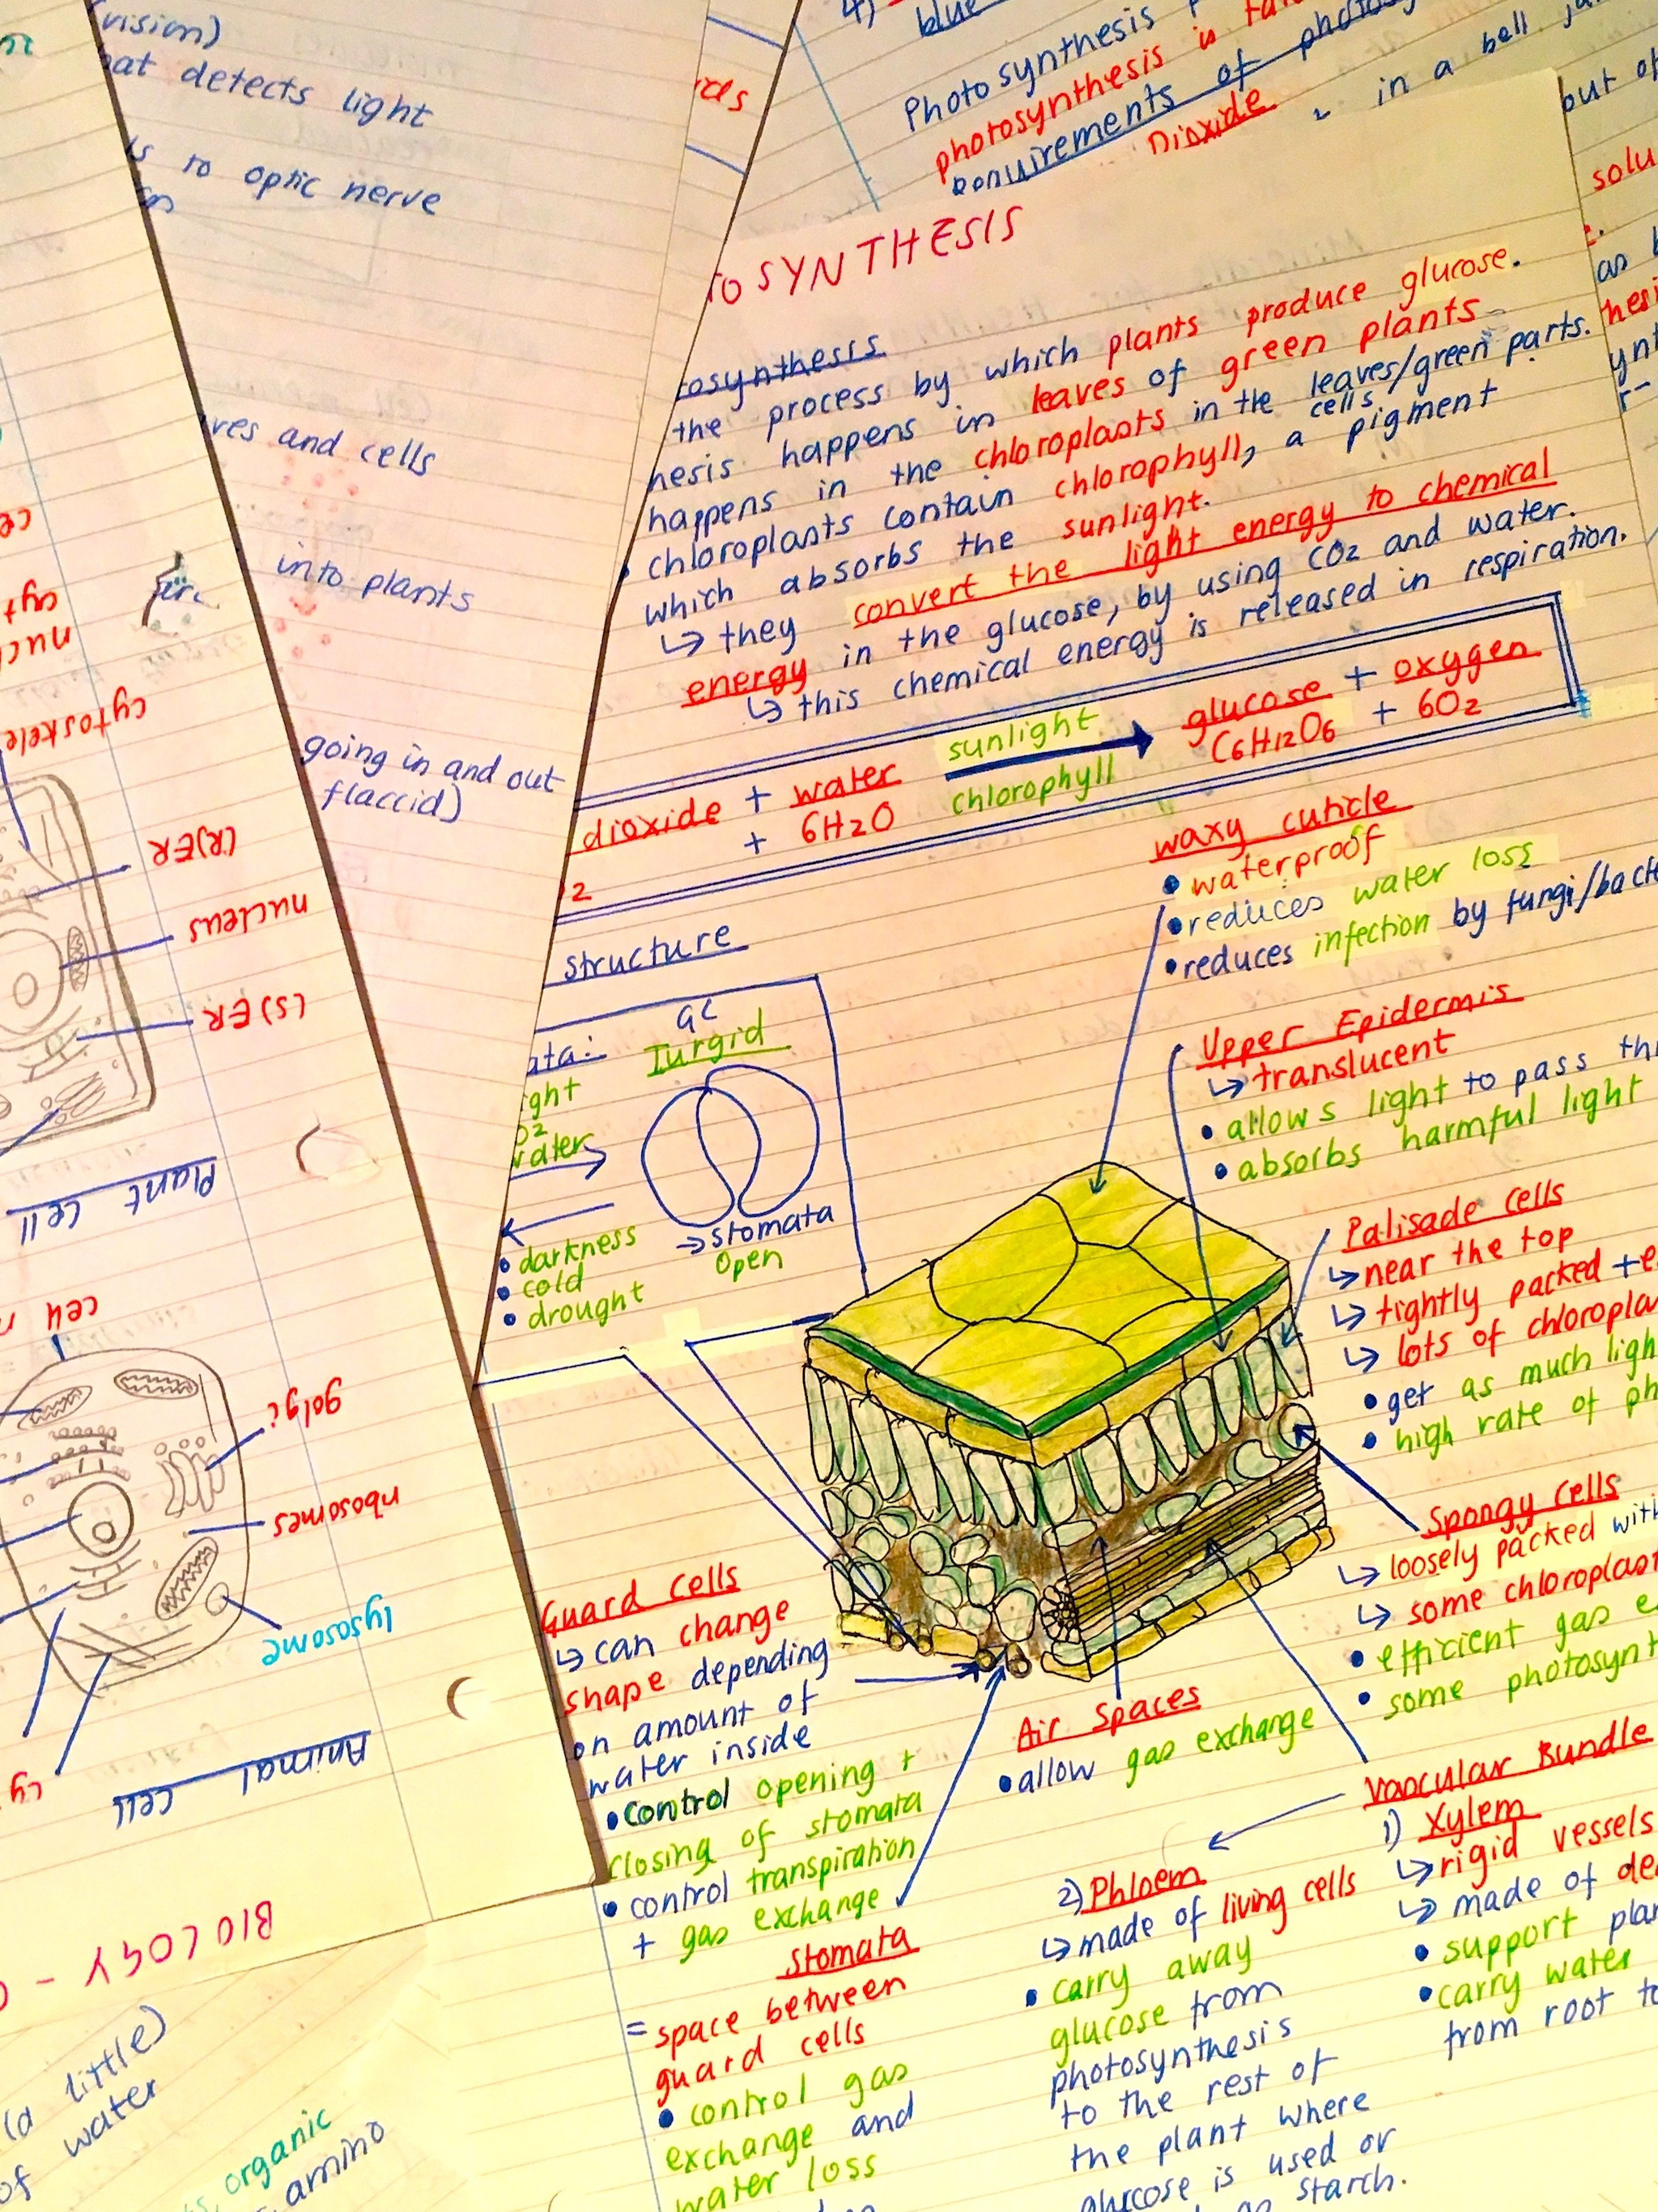 (vision)
detects light
to optic nerve
and cells
into plants
going in and out
flaccid)
4)
blue
Photosynthesis
photosynthesis is
requirements of
Dioxide
in a bell
but
SYNTHESIS
the process by which plants produce glucose.
happens in leaves of green plants
happens in the chloroplasts in the leaves/green parts.
cells
• chloroplasts contain chlorophyll, a pigment
which absorbs the sunlight.
↳ they convert the light energy to chemical
energy in the glucose, by using CO2 and water.
↳ this chemical energy is released in respiration.
dioxide + water sunlight glucose + oxygen
+ 6H2O chlorophyll C6H12O6 + 6O2
2
structure
GC
Turgid
→ stomata
open
• darkness
• cold
• drought
waxy cuticle
• waterproof
• reduces water loss
• reduces infection by fungi/
Upper Epidermis
↳ translucent
• allows light to pass
• absorbs harmful light
Palisade cells
↳ near the top
↳ tightly packed +
↳ lots of
• get as much
• high rate of
Spongy cells
↳ loosely packed
↳ some
• efficient gas
• some
Guard cells
↳ can change
shape depending
on amount of
water inside
• control opening +
closing of stomata
• control transpiration
+ gas exchange
Air Spaces
• allow gas exchange
Vascular Bundle
1) Xylem
↳ rigid vessels
↳ made of
• support
• carry water
from root to
2) Phloem
↳ made of living cells
• carry away
glucose from
photosynthesis
to the rest of
the plant where
glucose is used or
starch.
Stomata
= space between
guard cells
• control gas
exchange and
water loss
(R)ER
nucleus
(S)ER
Plant cell
golgi
ribosomes
lysosome
Animal cell
BIOLOGY -
(a little)
of water
organic
amino